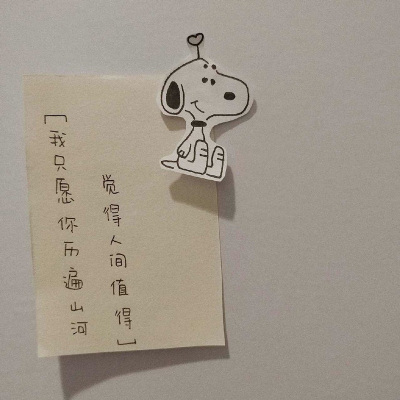 「我只愿你历遍山河
觉得人间值得」